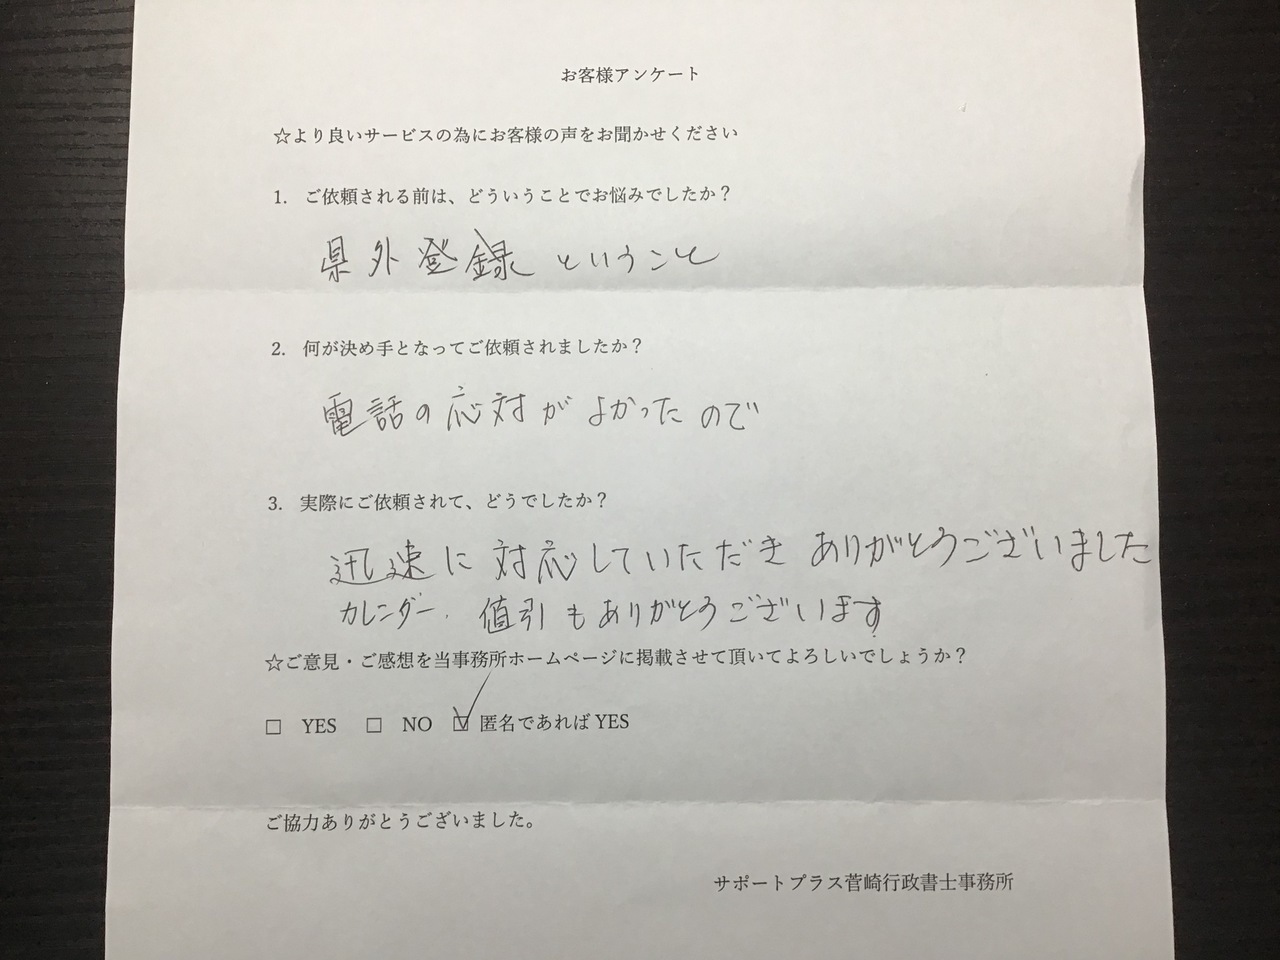 お客様アンケート
☆より良いサービスの為にお客様の声をお聞かせください
1. ご依頼される前は、どういうことでお悩みでしたか？
県外登録ということ
2. 何が決め手となってご依頼されましたか？
電話の応対がよかったので
3. 実際にご依頼されて、どうでしたか？
迅速に対応していただきありがとうございました
カレンダー、値引もありがとうございます
☆ご意見・ご感想を当事務所ホームページに掲載させて頂いてよろしいでしょうか？
□ YES □ NO ☑ 匿名であれば YES
ご協力ありがとうございました。
サポートプラス菅崎行政書士事務所